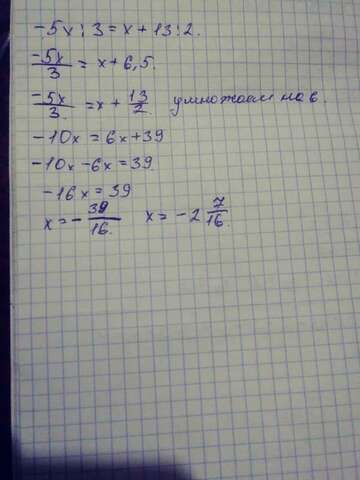 -5x : 3 = x + 13 : 2.
-5x/3 = x + 6,5.
-5x/3. = x + 13/2 умножаем на 6.
-10x = 6x + 39
-10x - 6x = 39.
-16x = 39
x = - 39/16. x = - 2 7/16.